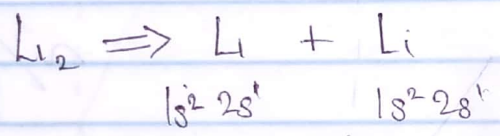 Li₂ ⟹ Li + Li
1s² 2s¹ 1s² 2s¹